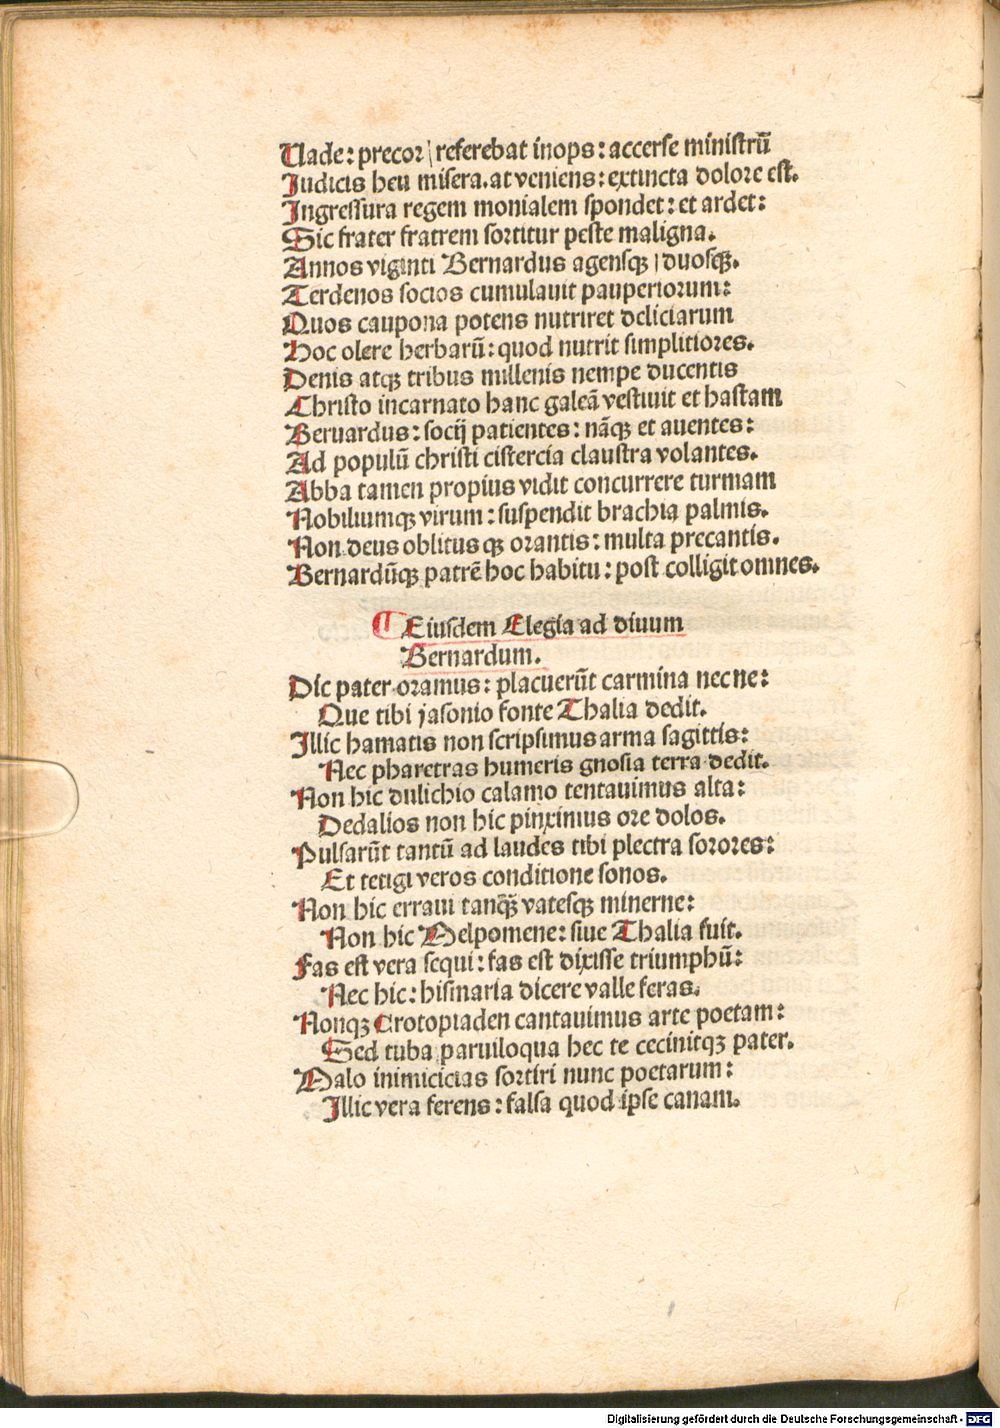 Uade: precor | referebat inops: accerse ministrũ
Judicis heu misera. at veniens: extincta dolore est.
Ingressura regem monialem spondet: et ardet:
Sic frater fratrem sortitur peste maligna.
Annos viginti Bernardus agensqꝫ | duosqꝫ.
Terdenos socios cumulauit pauperiorum:
Quos caupona potens nutriret deliciarum
Hoc olere herbarũ: quod nutrit simplitiores.
Denis atqꝫ tribus millenis nempe ducentis
Christo incarnato hanc galeã vestiuit et hastam
Beruardus: socij patientes: nãqꝫ et auentes:
Ad populũ christi cistercia claustra volantes.
Abba tamen propius vidit concurrere turmam
Nobiliumqꝫ virum: suspendit brachia palmis.
Non deus oblitus qꝫ orantis: multa precantis.
Bernardũqꝫ patrẽ hoc habitu: post colligit omnes.
¶ Eiusdem Elegia ad diuum
Bernardum.
Dic pater oramus: placuerũt carmina necne:
Que tibi jasonio fonte Thalia dedit.
Illic hamatis non scripsimus arma sagittis:
Nec pharetras humeris gnosia terra dedit.
Non hic dulichio calamo tentauimus alta:
Dedalios non hic pinximus ore dolos.
Pulsarũt tantũ ad laudes tibi plectra sorores:
Et tetigi veros conditione sonos.
Non hic erraui tanqꝫ̃ vatesqꝫ minerne:
Non hic Melpomene: siue Thalia fuit.
Fas est vera sequi: fas est dixisse triumphũ:
Nec hic: hismaria dicere valle feras.
Nonqꝫ Crotopiaden cantauimus arte poetam:
Sed tuba paruiloqua hec te cecinitqꝫ pater.
Malo inimicicias sortiri nunc poetarum:
Illic vera ferens: falsa quod ipse canam.
Digitalisierung gefördert durch die Deutsche Forschungsgemeinschaft - DFG